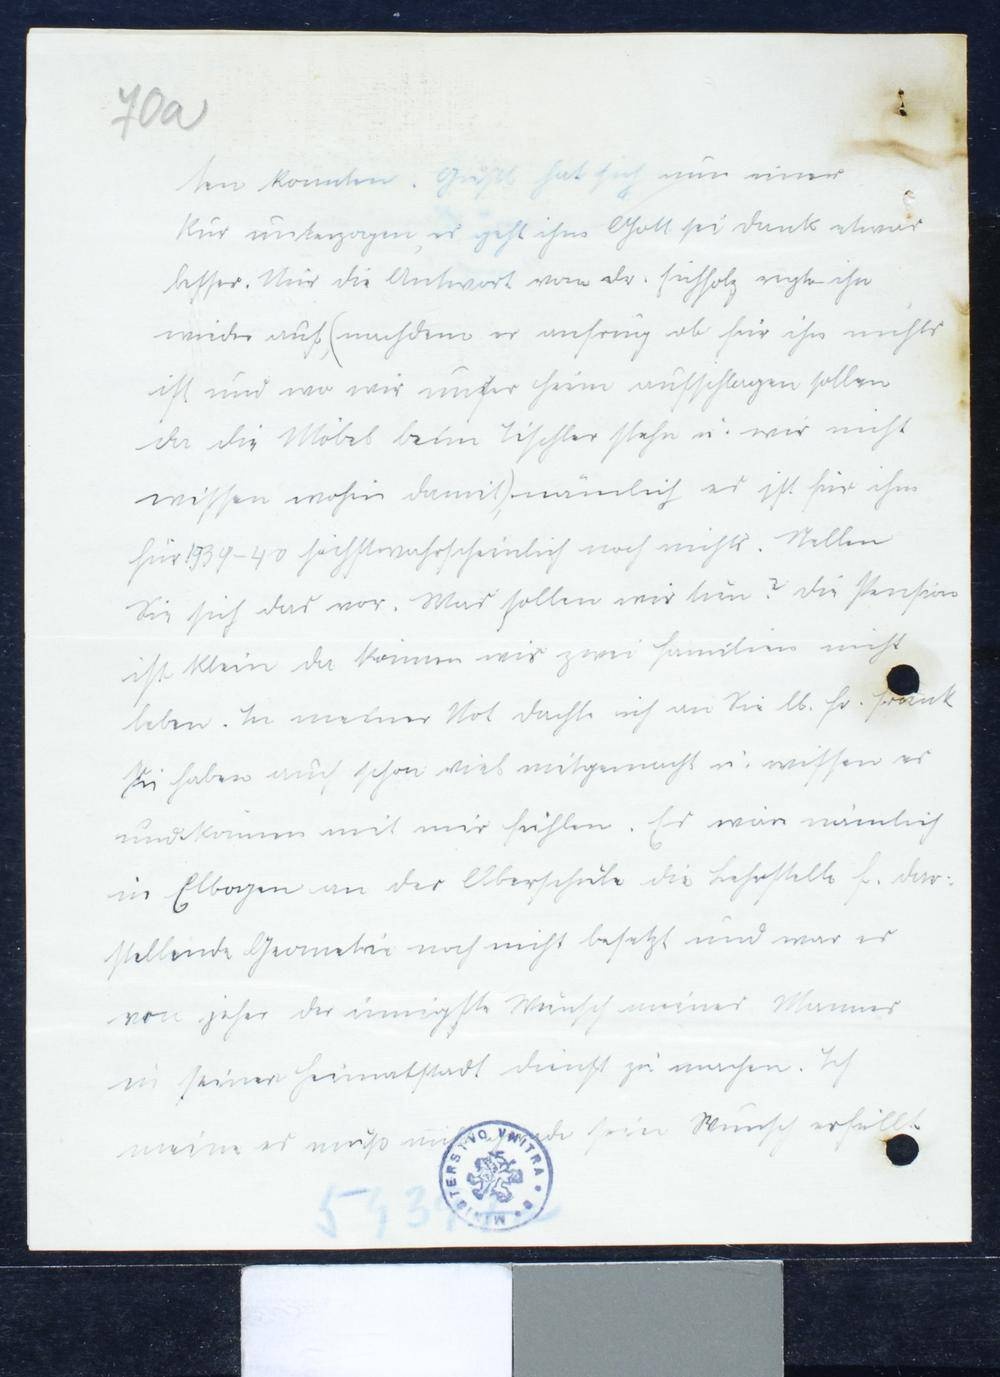 70a
ten konnten. Gustl hat sich nun einer
Kur unterzogen, es geht ihm Gott sei Dank etwas
besser. Nur die Antwort von Dr. Eichholz regte ihn
wieder auf, (nachdem er anfrug ob für ihn nichts
ist und wo wir unser Heim aufschlagen sollen
da die Möbel beim Tischler stehn u. wir nicht
wissen wohin damit), nämlich es ist für ihn
für 1939-40 höchstwahrscheinlich noch nichts. Stellen
Sie sich das vor. Was sollen wir tun? Die Pension
ist klein da können wir zwei Familien nicht
leben. In meiner Not dachte ich an Sie lb. Fr. Frank
Sie haben auch schon viel mitgemacht u. wissen es
und können mit mir fühlen. Es wär nämlich
in Elbogen an der Oberschule die Lehrstelle f. dar-
stellende Geometrie noch nicht besetzt und war es
von jeher der innigste Wunsch meines Mannes
in seiner Heimatstadt Dienst zu machen. Ich
meine es muß sein Wunsch erfüllt
MINISTERSTVO VNITRA